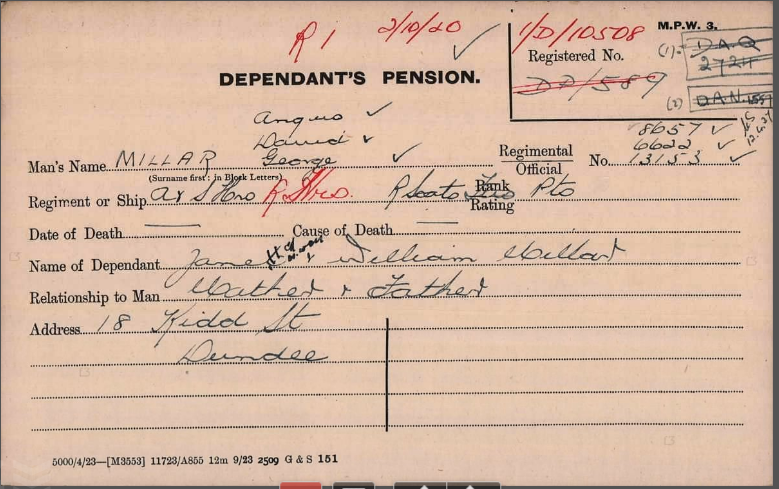 R 1 2/10/20 1/D/10508 M.P.W. 3.
Registered No. (1)- DAQ
2724
DEPENDANT'S PENSION. DP/589
(2) DAN.
Angus ✓
David ✓ 8657 ✓
George ✓ Regimental 6622 ✓
Man's Name MILLAR Official No. 13153 ✓
(Surname first: in Block Letters)
Regiment or Ship A & S Hrs R Hrs. R Scots Fus Rank Pte
Rating
Date of Death — Cause of Death —
Name of Dependant Jane & William Millar
Relationship to Man Mother & Father
Address 18 Kidd St
Dundee
5000/4/23—[M3553] 11723/A855 12m 9/23 2509 G & S 151